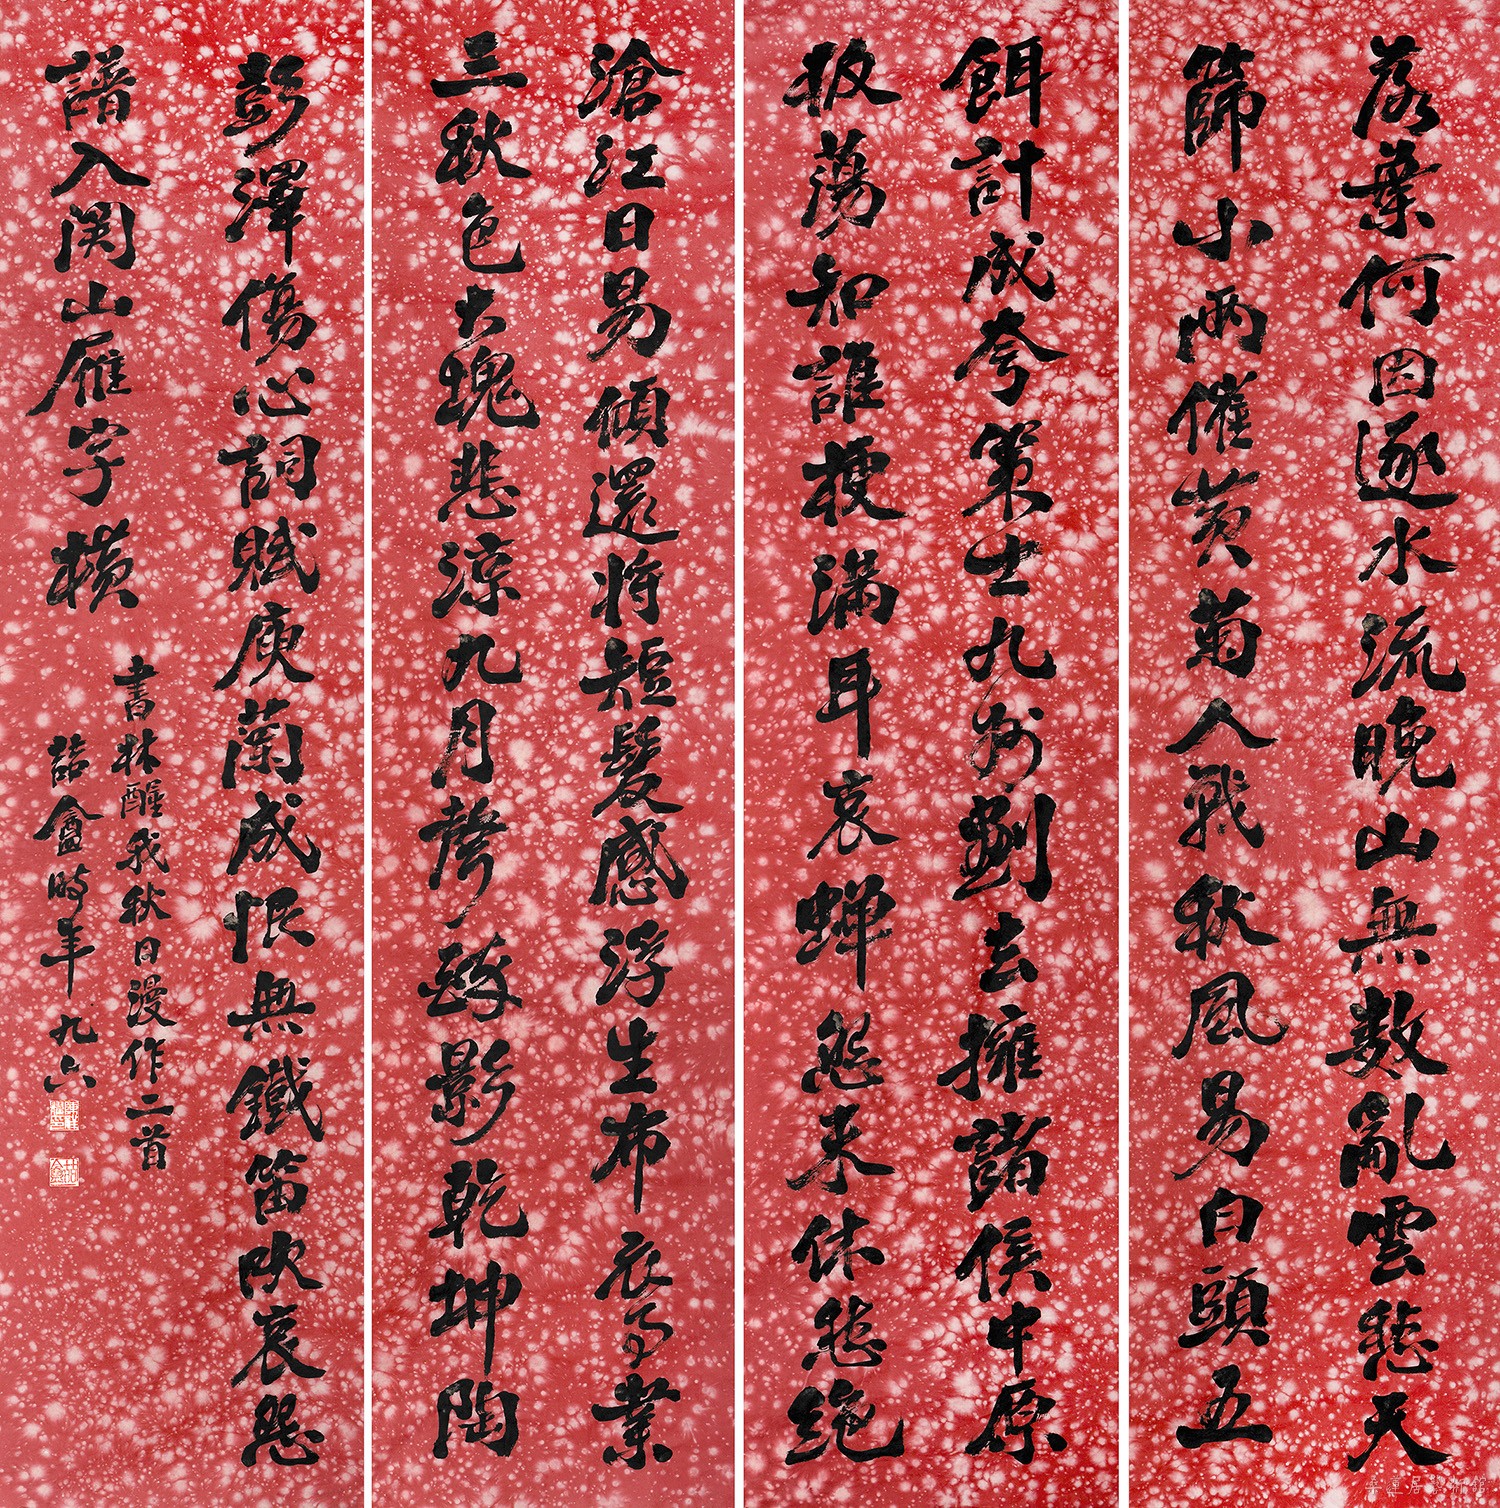 落葉何因逐水流晚山無數亂雲愁天
篩小雨催黃菊人戰秋風易白頭五
餌計成夸策士九州割去擁諸侯中原
板蕩知誰梗滿耳哀蟬總未休愁絕
滄江日易傾還將短髮感浮生布衣事業
三秋色大塊悲涼九月聲影乾坤陶
彭澤傷心詞賦庾蘭成恨無鐵笛吹哀怨
譜入関山雁字橫
書林醒我秋日漫作二首
喆盦時年九六